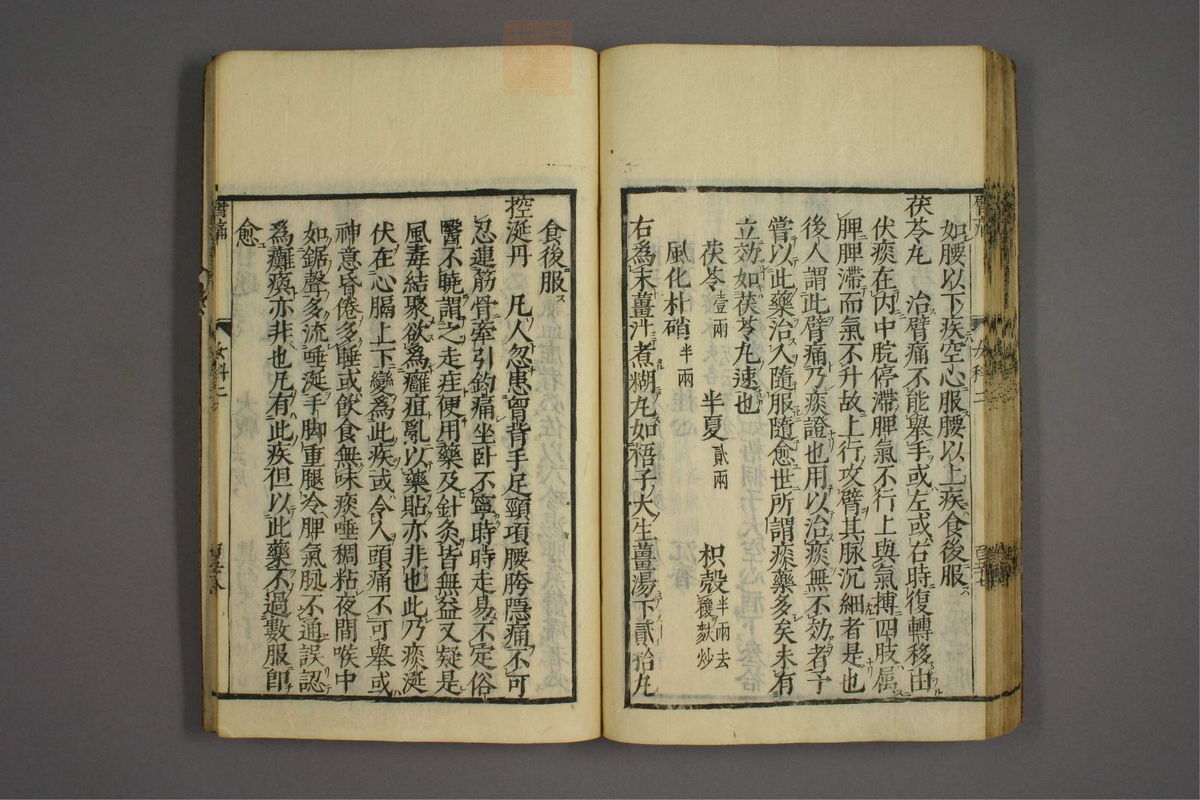 如腰以下疾空心服腰以上疾食後服
茯苓丸 治臂痛不能舉手或左或右時復轉移由
伏痰在内中脘停滯脾氣不行上與氣搏四肢属
脾脾滯而氣不升故上行攻臂其脉沉細者是也
後人謂此臂痛乃痰證也用以治痰無不効者予
嘗以此藥治人隨服隨愈世所謂痰藥多矣未有
立効如茯苓丸速也
茯苓壹兩 半夏貳兩 枳殼半兩去穰麩炒
風化朴硝半兩
右為末薑汁煮糊丸如梧子大生薑湯下貳拾丸
食後服
控涎丹 凡人忽患胷背手足頸項腰胯隱痛不可
忍連筋骨牽引鈞痛坐卧不寧時時走易不定俗
醫不曉謂之走疰便用藥及針灸皆無益又疑是
風毒結聚欲為癰疽亂以藥貼亦非也此乃痰涎
伏在心膈上下變為此疾或令人頭痛不可舉或
神意昏倦多睡或飲食無味痰唾稠粘夜間喉中
如鋸聲多流唾涎手脚重腿冷脾氣脉不通誤認
為癱瘓亦非也凡有此疾但以此藥不過數服即
愈
臂痛 女科二